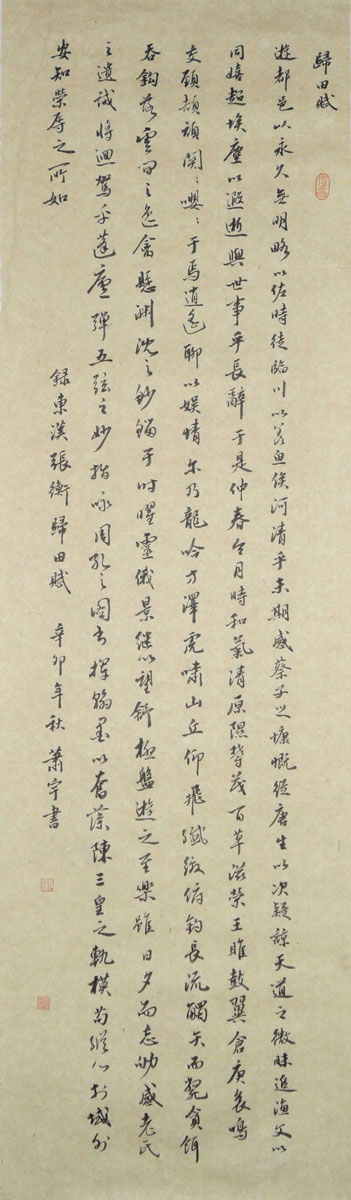 歸田賦
遊都邑以永久無明略以佐時徒臨川以羨魚俟河清乎未期感蔡子之慷慨從唐生以決疑諒天道之微昧追漁父以
同嬉超埃塵以遐逝與世事乎長辭于是仲春令月時和氣清原隰鬱茂百草滋榮王雎鼓翼倉庚哀鳴
交頸頡頏關々嚶々于焉逍遙聊以娛情尓乃龍吟方澤虎嘯山丘仰飛纖繳俯釣長流觸矢而斃貪餌
吞鉤落雲間之逸禽懸淵沈之魦鰡于時曜靈俄景繼以望舒極盤遊之至樂雖日夕而忘劬感老氏
之遺誡將迴駕乎蓬廬彈五弦之妙指詠周孔之圖書揮翰墨以奮藻陳三皇之軌模苟縱心於域外
安知榮辱之所如
錄東漢張衡歸田賦 辛卯年秋 蕭宇書